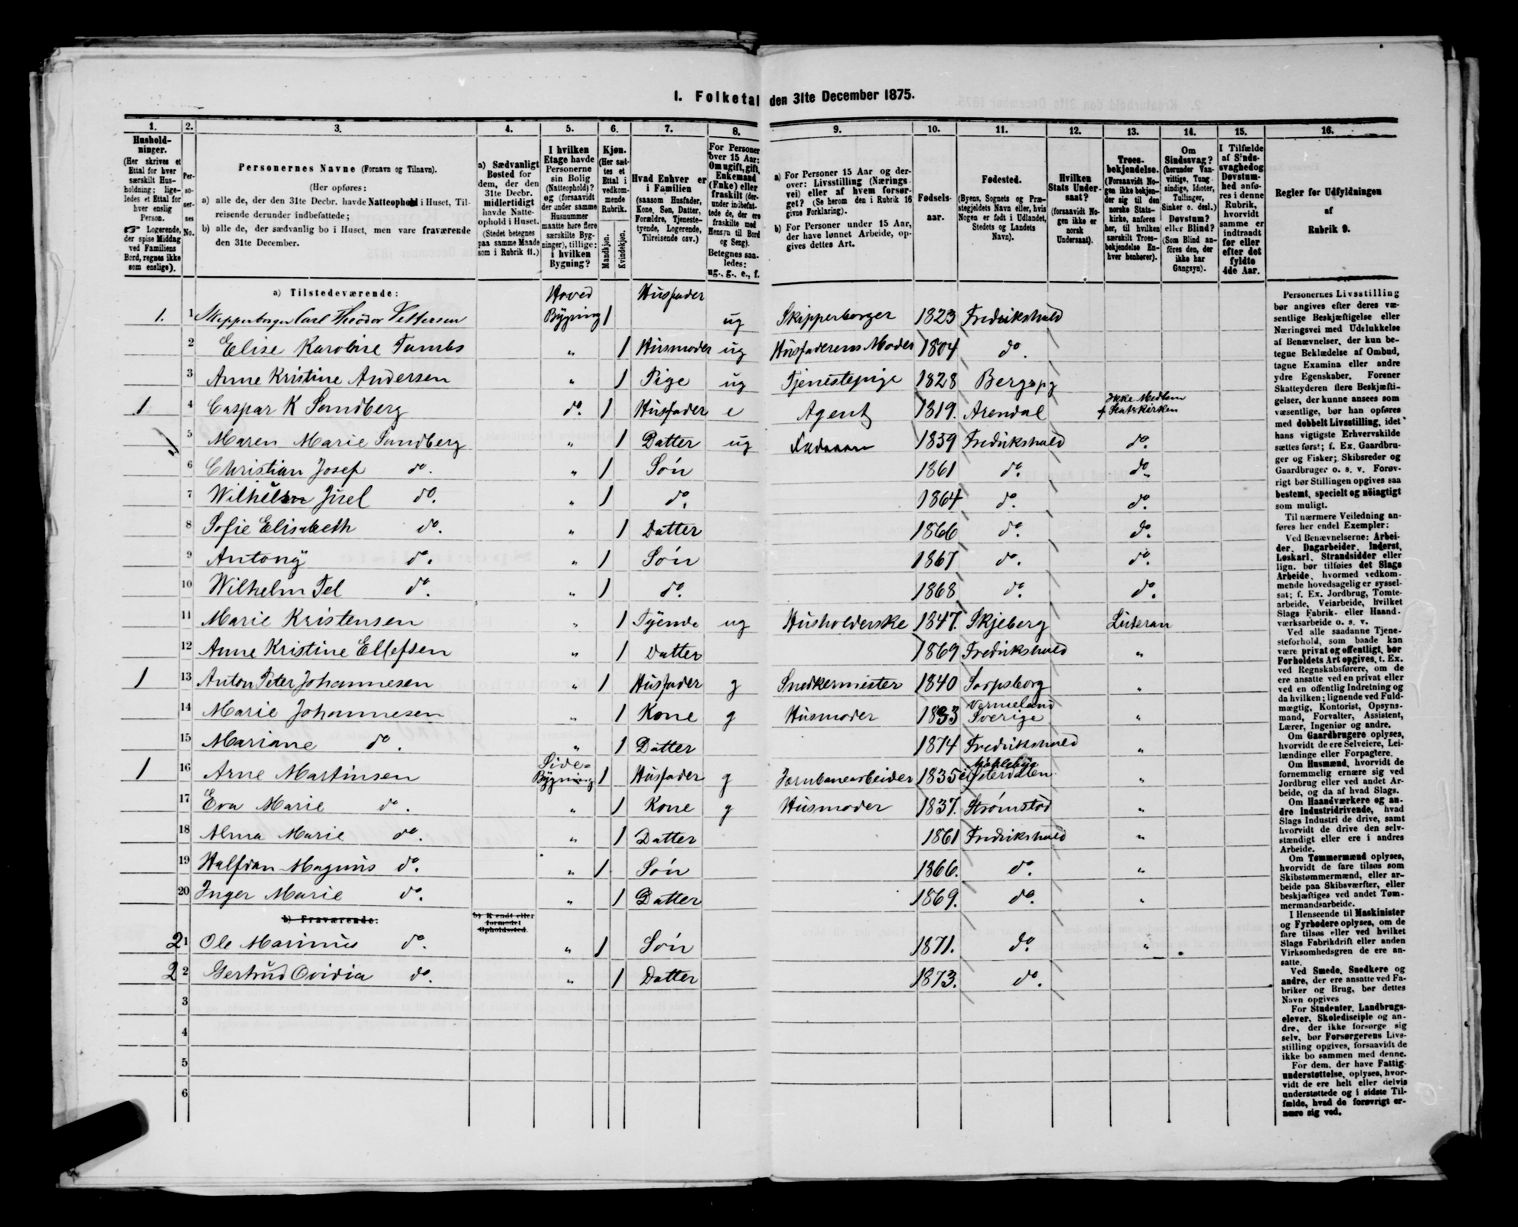 I. Folketal den 31te December 1875.
1. 2. 3. 4. 5. 6. 7. 8. 9. 10. 11. 12. 13. 14. 15. 16.
Hushold-
ninger.
(Her skrives et
Ettal for hver
særskilt Hus-
holdning; lige-
ledes et Ettal for
hver enslig
Person.
☞ Logerende,
der spise Middag
ved Familiens
Bord, regnes ikke
som enslige).
Per-
so-
ner-
nes
No.
Personernes Navne (Fornavn og Tilnavn).
(Her opføres:
a) alle de, der den 31te Decbr. havde Natteophold i Huset, Til-
reisende derunder indbefattede;
b) alle de, der sædvanlig bo i Huset, men vare fraværende
den 31te December.
a) Sædvanligt
Bosted for
dem, der den
31te Decbr.
midlertidigt
havde Natte-
ophold i Huset.
(Stedet betegnes
paa samme Maade
som i Rubrik 11.)
I hvilken
Etage havde
Personerne
sin Bolig
(Natteophold)?
og (forsaavidt
der under samme
Husnummer
maatte høre flere
særskilte Byg-
ninger), tillige:
i hvilken
Bygning?
Kjøn.
(Her sæt-
tes et
Ettal i
vedkom-
mende
Rubrik.
Mandkjøn.
Kvindekjøn.
Hvad Enhver er
i Familien
(saasom Husfader,
Kone, Søn, Datter,
Forældre, Tjeneste-
tyende, Logerende,
Tilreisende osv.)
For Personer
over 15 Aar:
Om ugift, gift,
Enkemand
(Enke) eller
fraskilt (der-
under indbefat-
tede de, der ere
fraskilte med
Hensyn til Bord
og Seng).
Betegnes saa-
ledes:
ug., g., e., f.
a) For Personer 15 Aar og der-
over: Livsstilling (Nærings
vei) eller af hvem forsør-
get? (Se herom den i Rubrik 16
givne Forklaring).
b) For Personer under 15 Aar,
der have lønnet Arbeide, op-
gives dettes Art.
Fødsels-
aar.
Fødested.
(Byens, Sognets og Præ-
stegjeldets Navn eller, hvis
Nogen er født i Udlandet,
Stedets og Landets
Navn).
Hvilken
Stats Under-
saat?
(forsaavidt No-
gen ikke er
norsk
Undersaat).
Troes-
bekjendelse.
(Forsaavidt No-
gen ikke bekjen-
der sig til den
norske Stats-
kirke, anføres
her, til hvilken
særskilt Troes-
bekjendelse En-
hver henhører).
Om
Sindssvag?
(herunder Van-
vittige, Tung-
sindige, Idioter,
Tullinger,
Sinker o. desl.)
Døvstum?
eller Blind?
(Som Blind an-
føres den, der
ikke har
Gangsyn).
I Tilfælde
af Sinds-
svaghed og
Døvstum-
hed anfø-
res i denne
Rubrik,
hvorvidt
samme er
indtraadt
før eller
efter det
fyldte
4de Aar.
Regler for Udfyldningen
af
Rubrik 9.
a) Tilstedeværende:
1. 1 Carl Theodor Hoved Bygning 1 Husfader ug Skipperborger 1823 Fredrikshald
2 Elise Karoline Tambs " 1 Husmoder ug Husfaderens Moder 1804 do.
3 Anne Kristine Andersen " 1 Pige ug Tjenestepige 1828 Berg spg
1 4 Caspar K Sandberg do. 1 Husfader e Agent 1819. Arendal Ikke Medlem f Statskirken
5 Maren Marie Sandberg " 1 Datter ug 1839 Fredrikshald do.
6 Christian Josef do. " 1 Søn 1861 do. do.
7 Wilhelm Juel do. " 1 do. 1864 do. do.
8 Sofie Elisabeth do. " 1 Datter 1866 do. do.
9 Antony do. " 1 Søn 1867 do. do.
10 Wilhelm Tel do. " 1 do. 1868 do. do.
11 Marie Kristensen " 1 Tyende ug Husholderske 1847. Skjeberg Luteran
12 Anne Kristine Ellefsen " 1 Datter 1869 Fredrikshald "
1 13 Anton Peter Johannesen " 1 Husfader g Snedkermester 1840 Sarpsborg "
14 Marie Johannesen " 1 Kone g Husmoder 1833 Vermeland Sverige "
15 Mariane do. " 1 Datter 1874 Fredrikshald "
1 16 Arne Martinsen Side- Bygning 1 Husfader g Jernbanearbeider 1835 Østerdalen "
17 Eva Marie do. " 1 Kone g Husmoder 1837. Strømstad "
18 Alma Marie do. " 1 Datter 1861 Fredrikshald "
19 Halfdan Magnus do. " 1 Søn 1866. do. "
20 Inger Marie do. " 1 Datter 1869. do. "
b) Fraværende: b) Kjendt eller formodet Opholdssted.
21 Ole Marinus do. " 1 Søn 1871. do. "
22 Gertrud Ovidia do. " 1 Datter 1873. do.
3
4
5
6
Personernes Livsstilling
bør angives efter deres væ-
sentlige Beskjæftigelse eller
Næringsvei med Udelukkelse
af Benævnelser, der kun be-
tegne Beklædelse af Ombud,
tagne Examina eller andre
ydre Egenskaber. Forener
Skatteyderen flere Beskjæfti-
gelser, der kunne ansees som
væsentlige, bør han opføres
med dobbelt Livsstilling, idet
hans vigtigste Erhvervskilde
sættes først; f. Ex. Gaardbru-
ger og Fisker; Skibsreder og
Gaardbruger o. s. v. Forøv-
rigt bør Stillingen opgives saa
bestemt, specielt og nöiagtigt
som muligt.
Til nærmere Veiledning an-
føres her endel Exempler:
Ved Benævnelserne: Arbei-
der, Dagarbeider, Inderst,
Løskarl, Strandsidder eller
lign. bør tilføies det Slags
Arbeide, hvormed vedkom-
mende hovedsagelig er syssel-
sat; f. Ex. Jordbrug, Tomte-
arbeide, Veiarbeide, hvilket
Slags Fabrik- eller Haand-
værksarbeide o. s. v.
Ved alle saadanne Tjene-
steforhold, som baade kan
være privat og offentligt, bør
Forholdets Art opgives, t. Ex.
ved Regnskabsførere, om de
ere ansatte ved en privat eller
ved en offentlig Indretning og
da hvilken; lignende ved Fuld-
mægtig, Kontorist, Opsyns-
mand, Forvalter, Assistent,
Lærer, Ingeniør og andre.
Om Gaardbrugere oplyses,
hvorvidt de ere Selveiere, Lei-
lændinge eller Forpagtere.
Om Husmænd, hvorvidt de
fornemmelig ernære sig ved
Jordbrug eller ved andet Ar-
beide, og da af hvad Slags.
Om Haandværkere og an-
dre Industridrivende, hvad
Slags Industri de drive, samt
hvorvidt de drive den selv-
stændigt eller ere i andres
Arbeide.
Om Tømmermænd oplyses,
hvorvidt de fare tilsøs som
Skibstømmermænd, eller ar-
beide paa Skibsværfter, eller
beskjæftiges ved andet Tøm-
mermandsarbeide.
I Henseende til Maskinister
og Fyrbødere oplyses, om de
fare tilsøs eller ved hvilket
Slags Fabrikdrift eller anden
Virksomhedsgren de ere an-
satte.
Ved Smede, Snedkere og
andre, der ere ansatte ved Fa-
briker og Brug, bør dettes
Navn opgives
For Studenter, Landbrugs-
elever, Skoledisciple og an-
dre, der ikke forsørge sig
selv, bør Forsørgerens Livs-
stilling opgives, forsaavidt de
ikke bo sammen med denne.
For dem, der have Fattig-
understøttelse, oplyses, hvor-
vidt de ere helt eller delvis
understøttede og i sidste Til-
fælde, hvad de forøvrigt er-
nære sig ved.